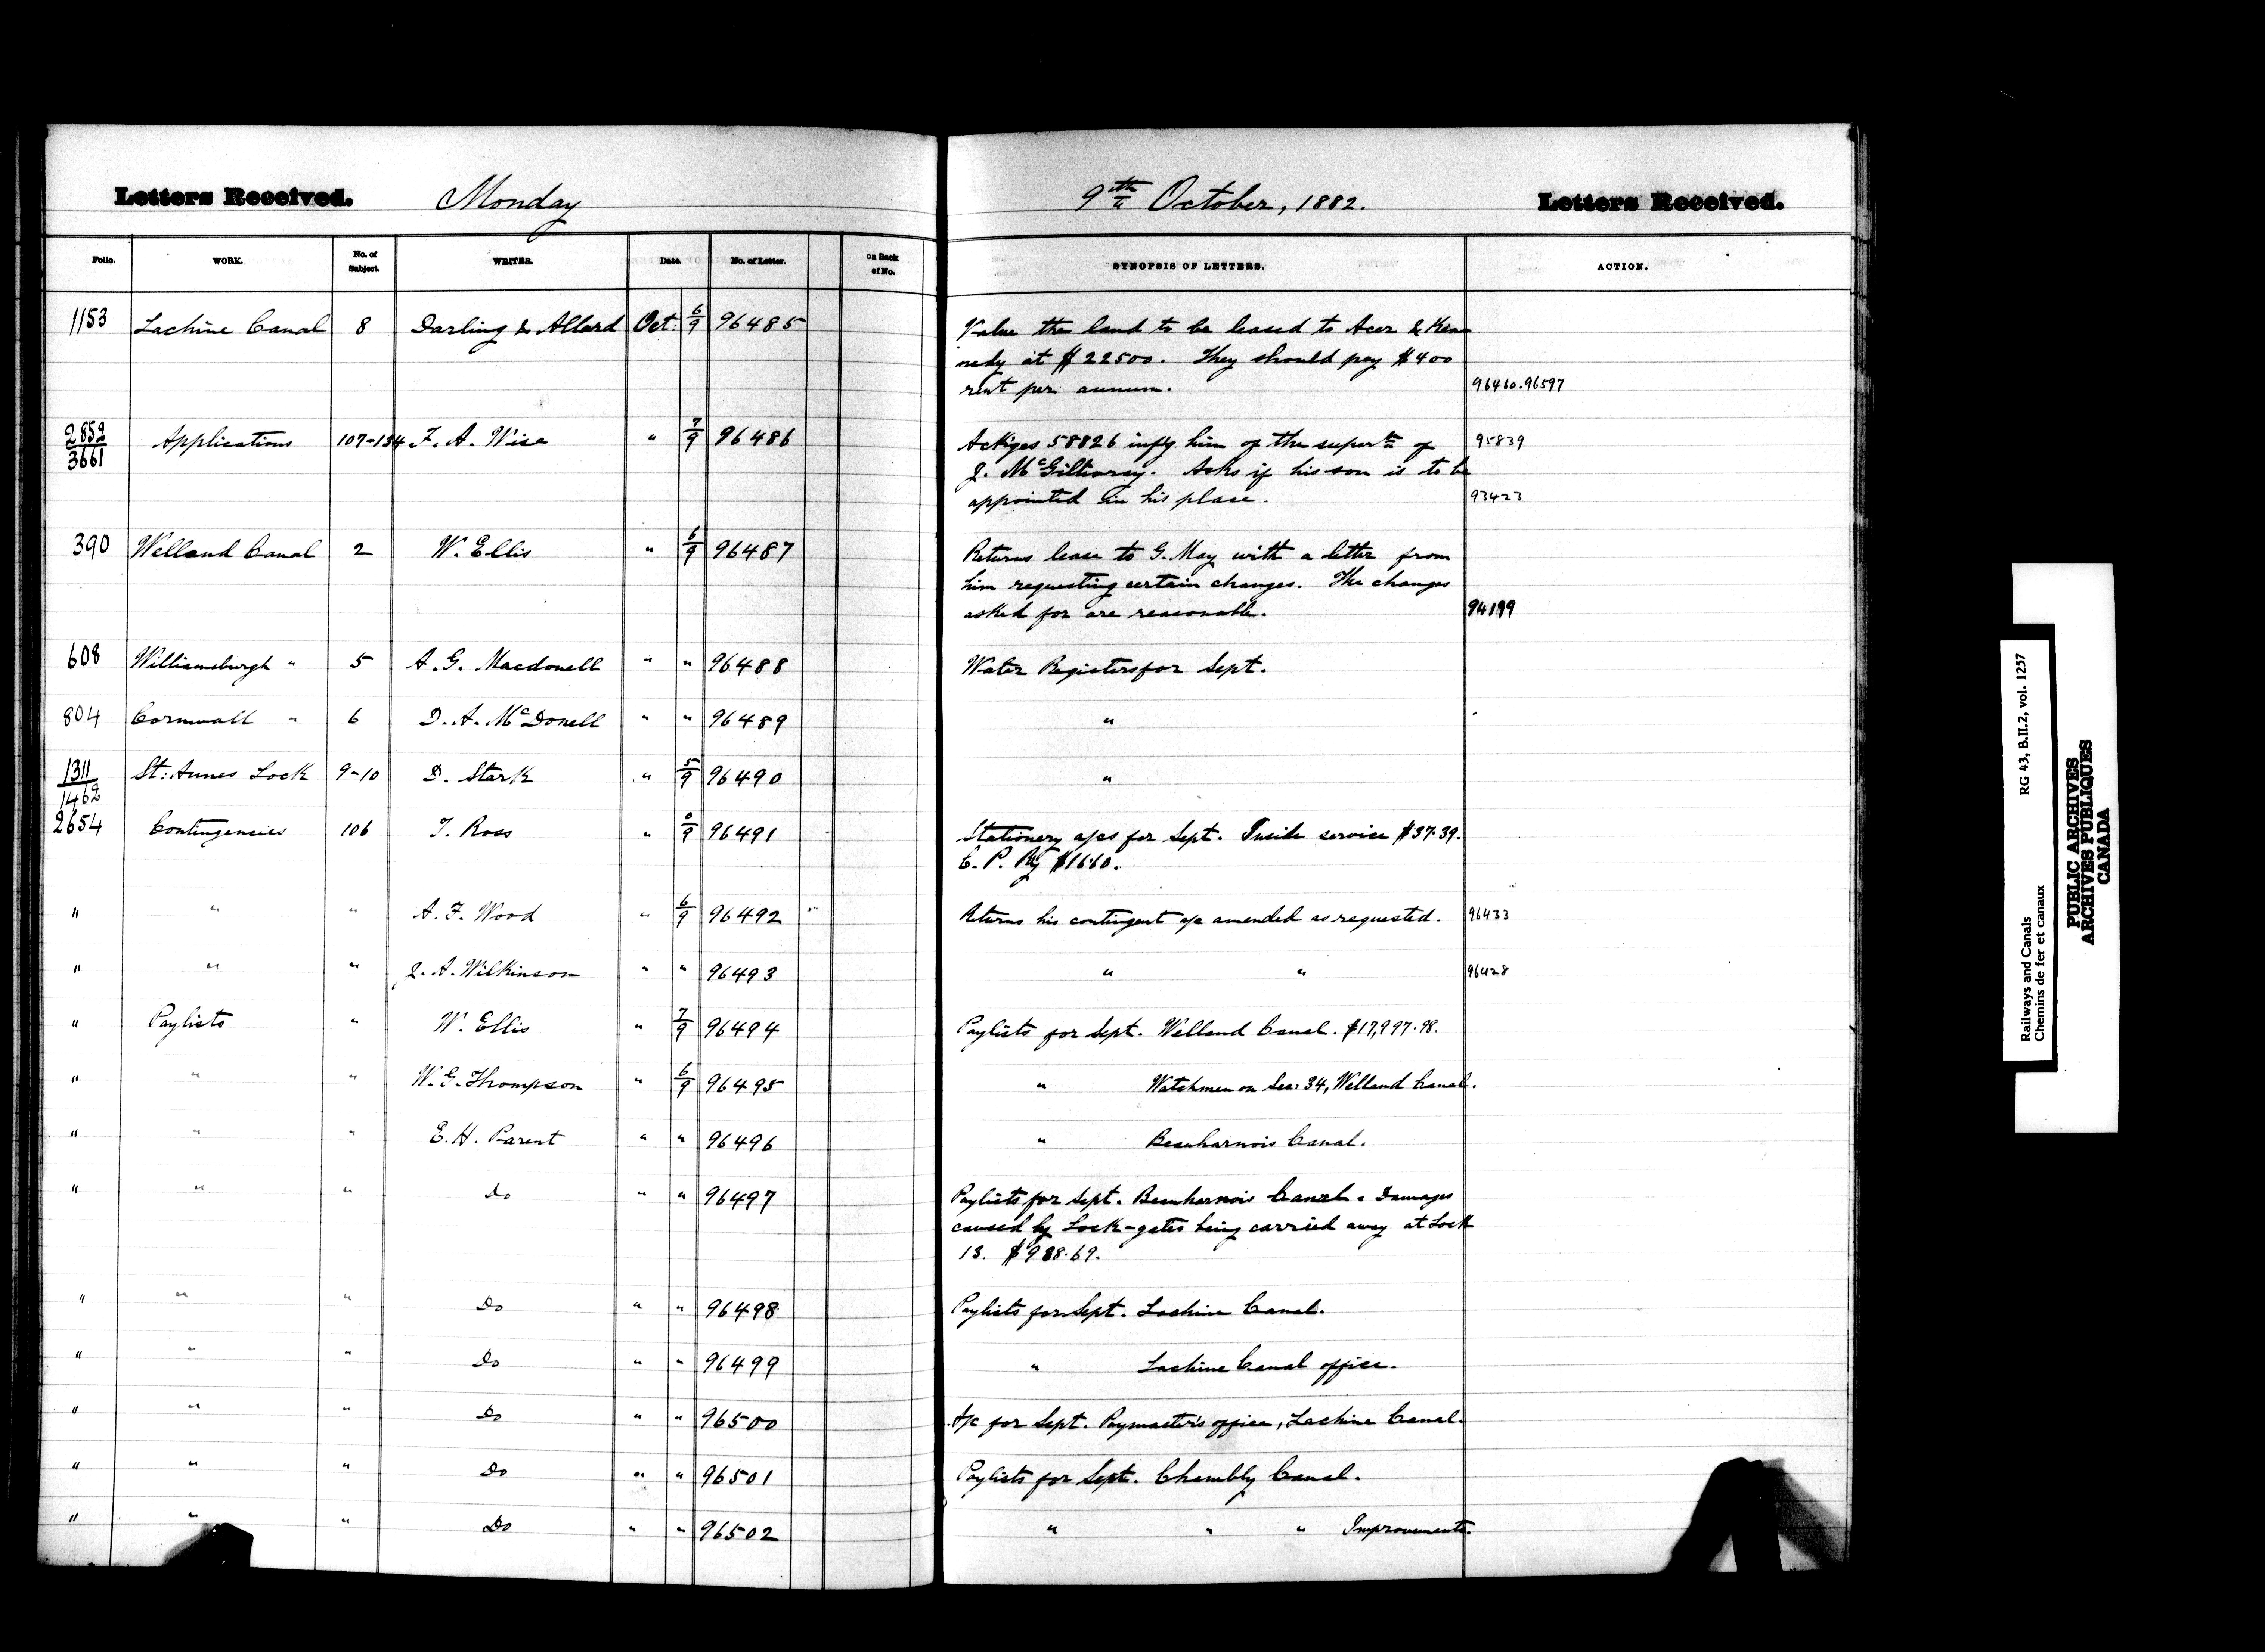 Letters Received. Monday
9th October, 1882. Letters Received.
Folio. WORK. No. of Subject. WRITER. Date. No. of Letter. on Back of No. SYNOPSIS OF LETTERS. ACTION.
1153 Lachine Canal 8 Darling & Allard Oct: 6/9 96485 Value the land to be leased to Acer & Ken-
nedy at $22500. They should pay $400
rent per annum. 96460.96597
2852/3661 Applications 107-134 F. A. Wise " 7/9 96486 Ackges 58826 infg him of the of 95839
J. McGillivray. Asks if his son is to be
appointed in his place. 93423
390 Welland Canal 2 W. Ellis " 6/9 96487 Returns lease to G. May with a letter from
him requesting certain changes. The changes
asked for are reasonable. 94199
608 Williamsburgh " 5 A. G. Macdonell " " 96488 Water Registers for Sept.
804 Cornwall " 6 D. A. McDonell " " 96489 "
1311/1462 St: Annes Lock 9-10 D. Stark " 5/9 96490 "
2654 Contingencies 106 T. Ross " 0/9 96491 Stationery a/cs for Sept. Inside service $37.39.
C. P. Ry $16.60.
" " " A. F. Wood " 6/9 96492 Returns his contingent a/c amended as requested. 96433
" " " J. A. Wilkinson " " 96493 " " 96428
" Paylists " W. Ellis " 7/9 96494 Paylists for Sept. Welland Canal. $17,997.98.
" " " W. G. Thompson " 6/9 96495 " Watchmen on Sec: 34, Welland Canal.
" " " E. H. Parent " " 96496 " Beauharnois Canal.
" " " Do " " 96497 Paylists for Sept. Beauharnois Canal. Damages
caused by Lock-gates being carried away at Lock
13. $938.69.
" " " Do " " 96498 Paylists for Sept. Lachine Canal.
" " " Do " " 96499 " Lachine Canal office.
" " " Do " " 96500 A/c for Sept. Paymaster's office, Lachine Canal.
" " " Do " " 96501 Paylists for Sept. Chambly Canal.
" " " Do " " 96502 " " " Improvements.
RG 43, B.II.2, vol. 1257
Railways and Canals
Chemins de fer et canaux
PUBLIC ARCHIVES
ARCHIVES PUBLIQUES
CANADA